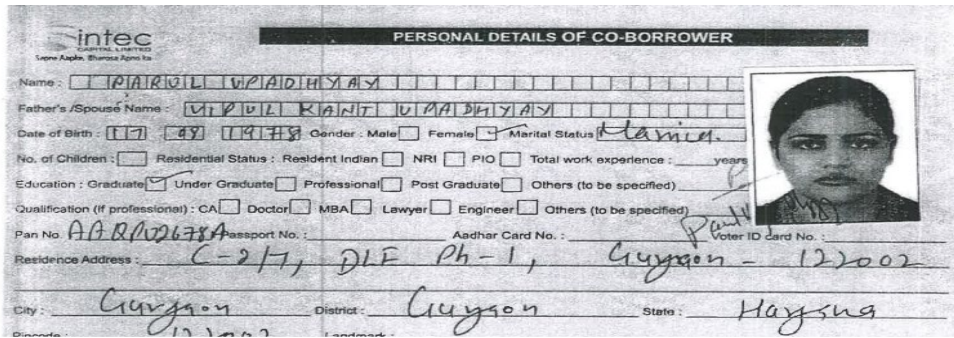 intec
CAPITAL LIMITED
PERSONAL DETAILS OF CO-BORROWER
Name : PARUL UPADHYAY
Father's /Spouse Name : VIPUL KANT UPADHYAY
Date of Birth : 17 1978 Gender : Male Female Marital Status
No. of Children : Residential Status : Resident Indian NRI PIO Total work experience : years
Education : Graduate Under Graduate Professional Post Graduate Others (to be specified)
Qualification (if professional) : CA Doctor MBA Lawyer Engineer Others (to be specified)
Pan No. Passport No. : Aadhar Card No. : Voter ID card No. :
Residence Address : C-2/7, DLF Ph-1, Gurgaon - 122002
City : Gurgaon District : Gurgaon State :
Pincode : 122002 Landmark :